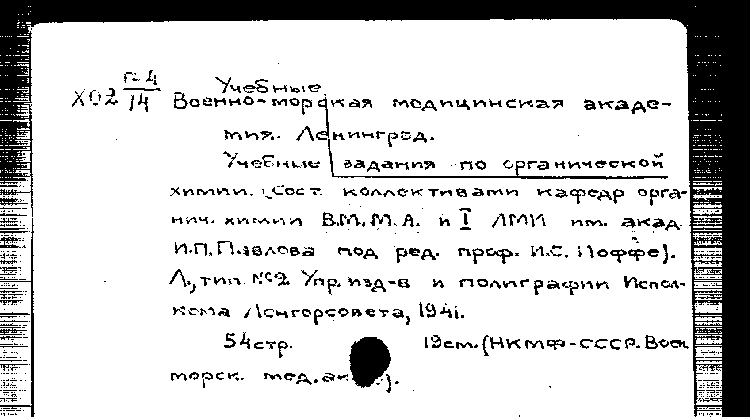 Г-4 Учебные
ХО2 14 Военно-морская медицинская акаде-
мия. Ленинград.
Учебные задания по органической
химии. (Сост. коллективами кафедр орга-
нич. химии В.М.М.А. и I ЛМИ им. акад.
И.П. Павлова под ред. проф. И.С. Иоффе).
Л., тип. №2 Упр. изд-в и полиграфии Испол-
кома Ленгорсовета, 1941.
54стр. 19см. (НКМФ-СССР. Воен.
морск. мед. ак ).